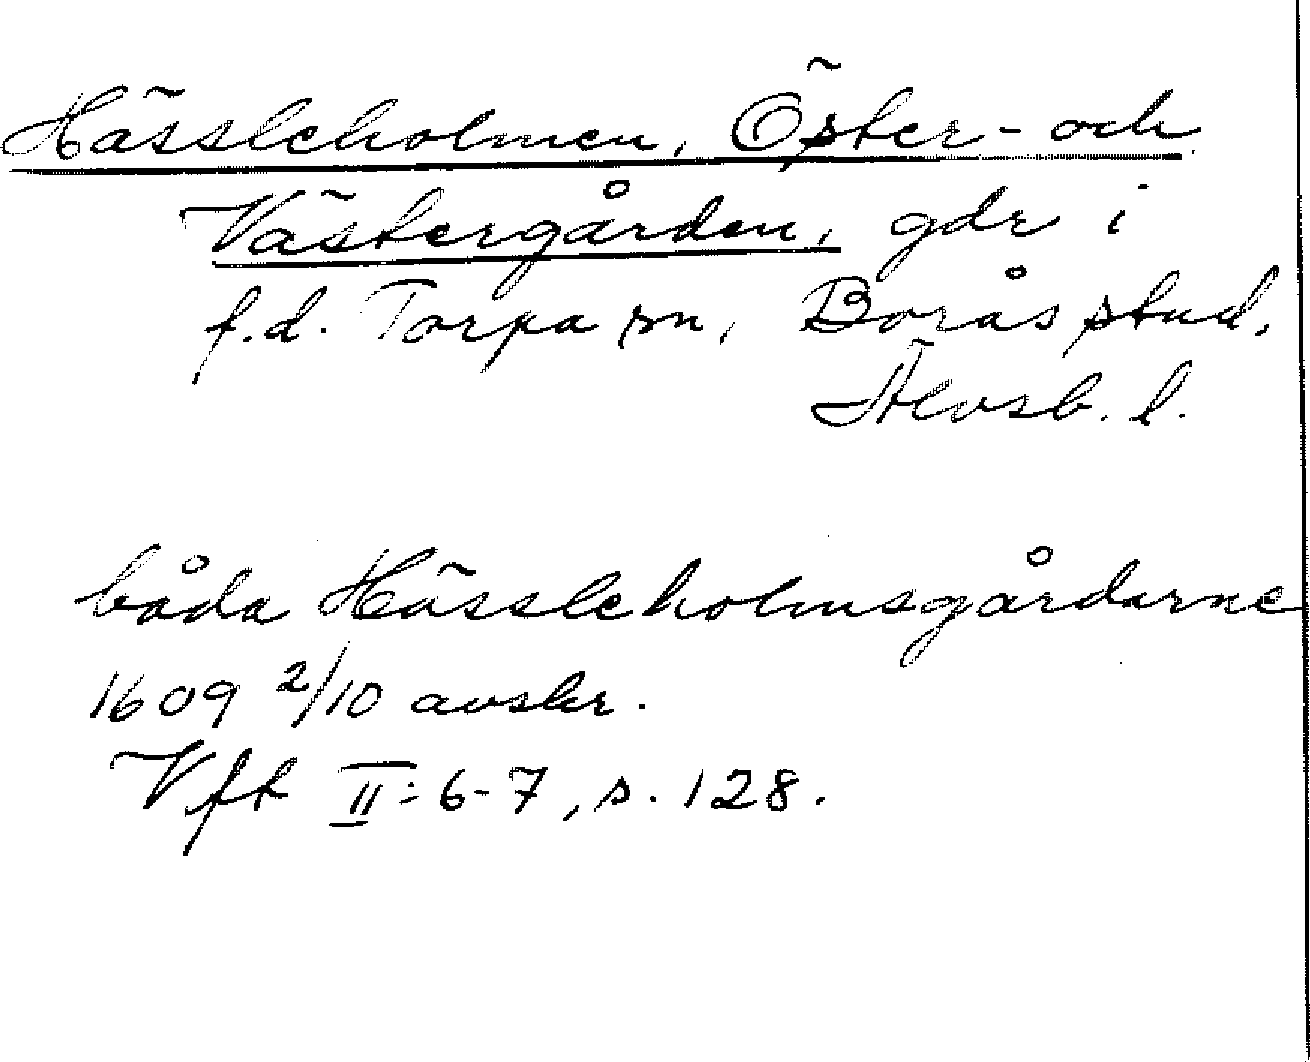 Hässleholmen, Öster- och
Västergården, gdr i
f.d. Torpa sn, Borås stad,
Älvsb. l.
båda Hässleholmsgårdarne
1609 2/10 avskr.
Vft II:6-7, s. 128.